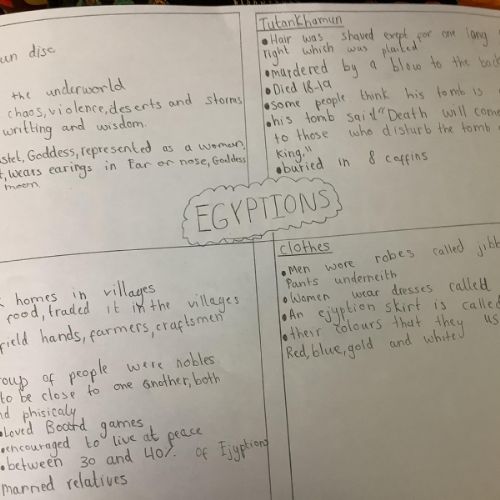 un disc
the underworld
chaos, violence, deserts and storms
writting and wisdom.
stet, Goddess, represented as a woman,
t, wears earings in Ear or nose, Goddess
moon.
Tutankhamun
•Hair was shaved exept for one long
right which was plaited
•murdered by a blow to the back
•Died 18-19
•some people think his tomb is
•his tomb said "Death will come
to those who disturb the tomb
King."
•buried in 8 coffins
EGYPTIONS
homes in villages
food, traded it in the villages
field hands, farmers, craftsmen
roup of people were nobles
to be close to one another, both
nd phisicaly
•Loved Board games
•encouraged to live at peace
•between 30 and 40% of Ejyptions
married relatives
clothes
•Men wore robes called jibb
Pants underneith
•Women wear dresses called
•An ejyption skirt is called
•their colours that they us
Red, blue, gold and white